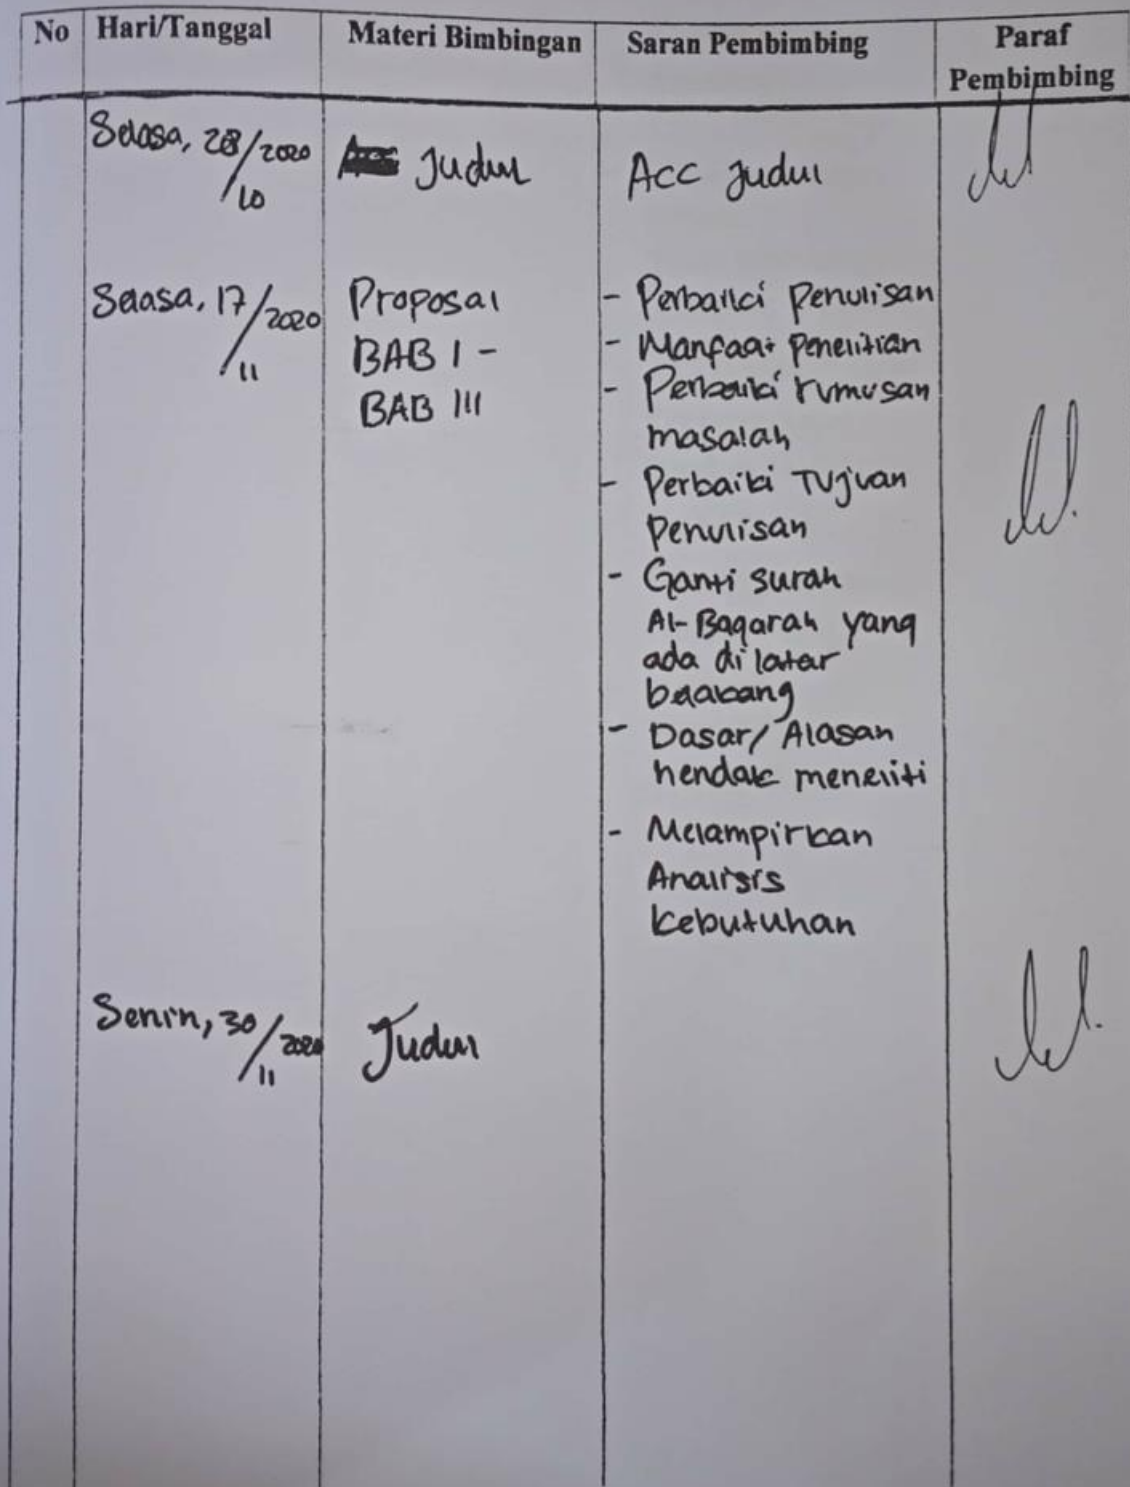 No Hari/Tanggal Materi Bimbingan Saran Pembimbing Paraf Pembimbing
Selasa, 28/10/2020 Judul Acc Judul
Selasa, 17/11/2020 Proposal - Perbaiki Penulisan
BAB I - - Manfaat Penelitian
BAB III - Perbaiki rumusan
masalah
- Perbaiki Tujuan
Penulisan
- Ganti surah
Al-Baqarah yang
ada di latar
belakang
- Dasar/Alasan
hendak meneliti
- Melampirkan
Analisis
Kebutuhan
Senin, 30/11/2020 Judul